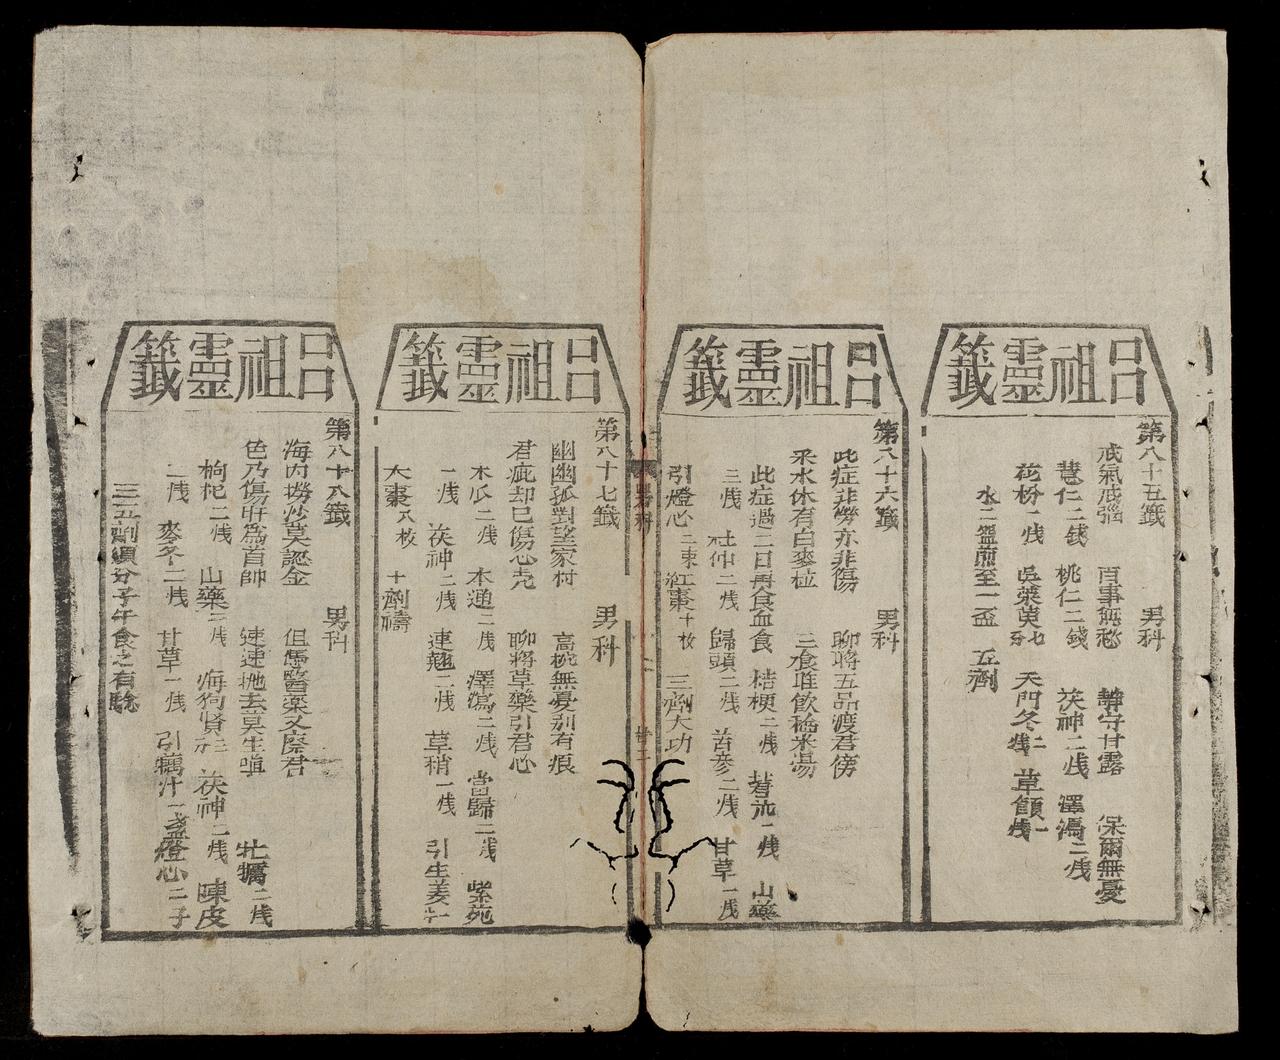 呂祖靈籤
第八十五籤 男科
戒氣戒惱 百事無愁 靜守甘露 保爾無憂
慧仁二錢 桃仁二錢 茯神二戋 澤瀉二戋
花粉一戋 吳茱萸七 天門冬二戋 草
水二盌煎至一盃 五劑
呂祖靈籤
第八十六籤 男科
此症非勞亦非傷 聊將五品渡君傍
采水休有白麥粒 三食唯飲秈米湯
此症過二日再食血食 桔梗二戋 蓍 一戋 山藥
三戋 杜仲二戋 歸頭二戋 苦參二戋 甘草一戋
引燈心二束 紅棗十枚 三劑大功
男科
廿二
呂祖靈籤
第八十七籤 男科
幽幽孤對望家村 高枕無憂別有痕
君疵却已傷心 聊將草藥引君心
木瓜二戋 木通二戋 澤瀉二戋 當歸二戋 紫菀
一戋 茯神二戋 連翹二戋 草稍一戋 引生姜
大棗八枚 十劑禱
呂祖靈籤
第八十八籤 男科
海內撈沙莫認金 但馬醫藥又療君
色乃傷肝為首帥 速速拋去莫生嗔 牡蠣二戋
枸杞二戋 山藥二戋 海狗腎 茯神二戋 陳皮
二戋 麥冬二戋 甘草一戋 引 汁一盞燈心二子
三五劑須分子午食之有驗